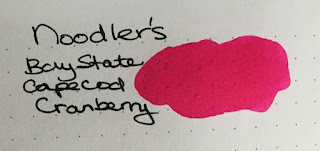 Noodler's
Bay State
Cape Cod
Cranberry